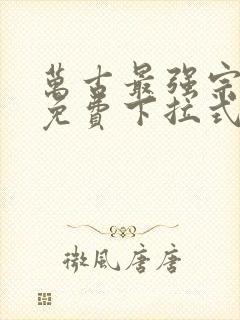 萬古最强宗
免費下拉式
微風唐唐